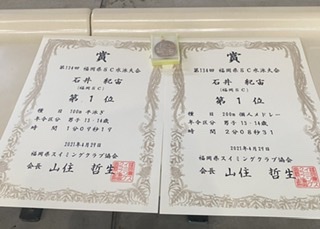 賞
第114回 福岡県SC水泳大会
石井 紀宙
(福岡SC)
第1位
種目 100m 平泳ぎ
年令区分 男子 13-14歳
時間 1分09秒19
2021年4月29日
福岡県スイミングクラブ協会
会長 山住 哲生
賞
第114回 福岡県SC水泳大会
石井 紀宙
(福岡SC)
第1位
種目 200m 個人メドレー
年令区分 男子 13-14歳
時間 2分08秒31
2021年4月29日
福岡県スイミングクラブ協会
会長 山住 哲生